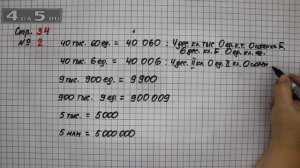 4@5.ru
Стр. 34
№ 2
40 тыс. 60 ед. = 40 060 : 4 дес. кл. тыс. 0 ед. к. т. 0 сотен к. Е.
6 дес. кл. Е. 0 ед. кл. ед.
40 тыс. 6 ед. = 40 006 : 4 дес. II кл. 0 ед. II кл. 0 сотен
9 тыс. 900 ед. = 9 900
900 тыс. 9 ед. = 900 009
5 тыс. = 5 000
5 млн = 5 000 000